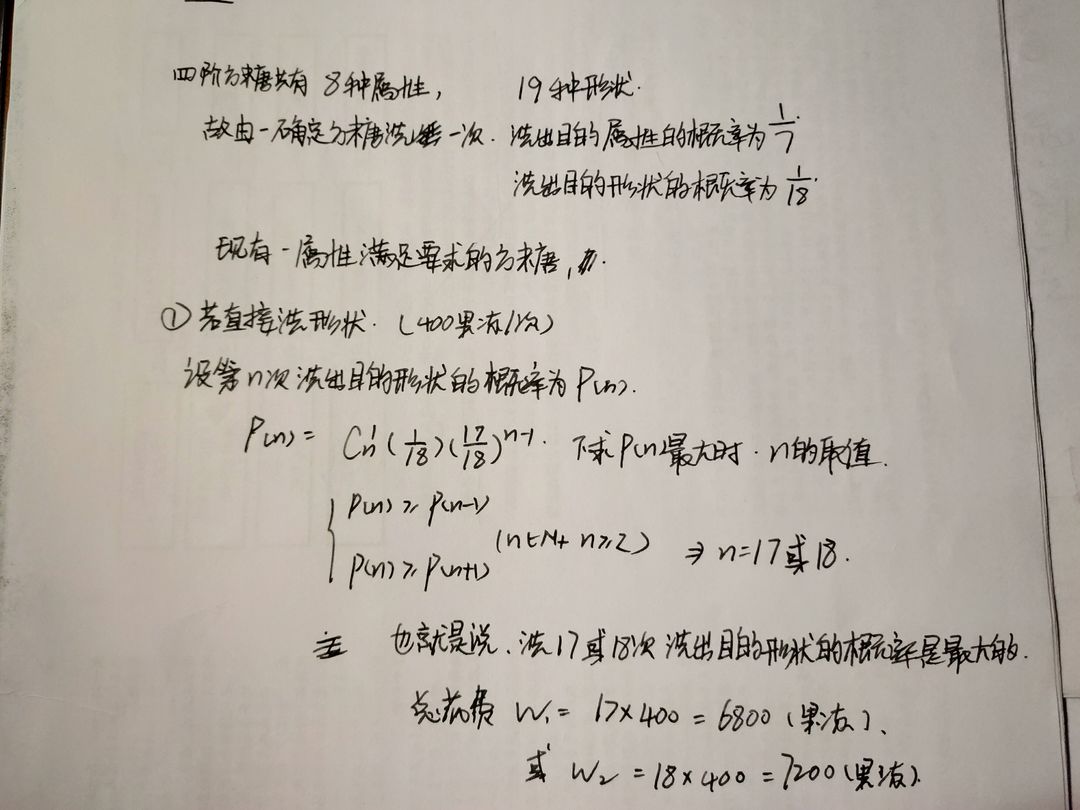 四阶方糖共有 8种属性, 19种形状.
故由一确定方糖洗一次. 洗出目的属性的概率为 1/7.
洗出目的形状的概率为 1/18.
现有一属性满足要求的方糖,
① 若直接洗形状. (400果冻/次)
设第n次洗出目的形状的概率为 P(n).
P(n) = C¹ₙ (1/18)(17/18)ⁿ⁻¹. 下求P(n)最大时. n的取值.
{ P(n) ≥ P(n-1)
P(n) ≥ P(n+1) (n∈N+ n≥2) ⇒ n=17或18.
也就是说、洗17或18次 洗出目的形状的概率是最大的.
总花费 W₁ = 17×400 = 6800 (果冻)、
或 W₂ = 18×400 = 7200 (果冻).